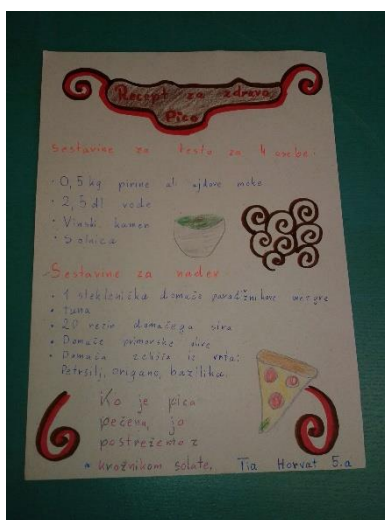 Recept za zdravo
Pico
Sestavine za testo za 4 osebe.
• 0,5 kg pirine al ajdove moke
• 2,5 dl vode
• Vinski kamen
• Solnica
Sestavine za nadev:
• 1 steklenička domače paradižnikove mezge
• tuna
• 20 rezin domačega sira
• Domače primorske olive
• Domača zelišča iz vrta:
Petršilj, origano, bazilika.
Ko je pica
pečena, jo
postrežemo z
krožnikom solate. Tia Horvat 5.a